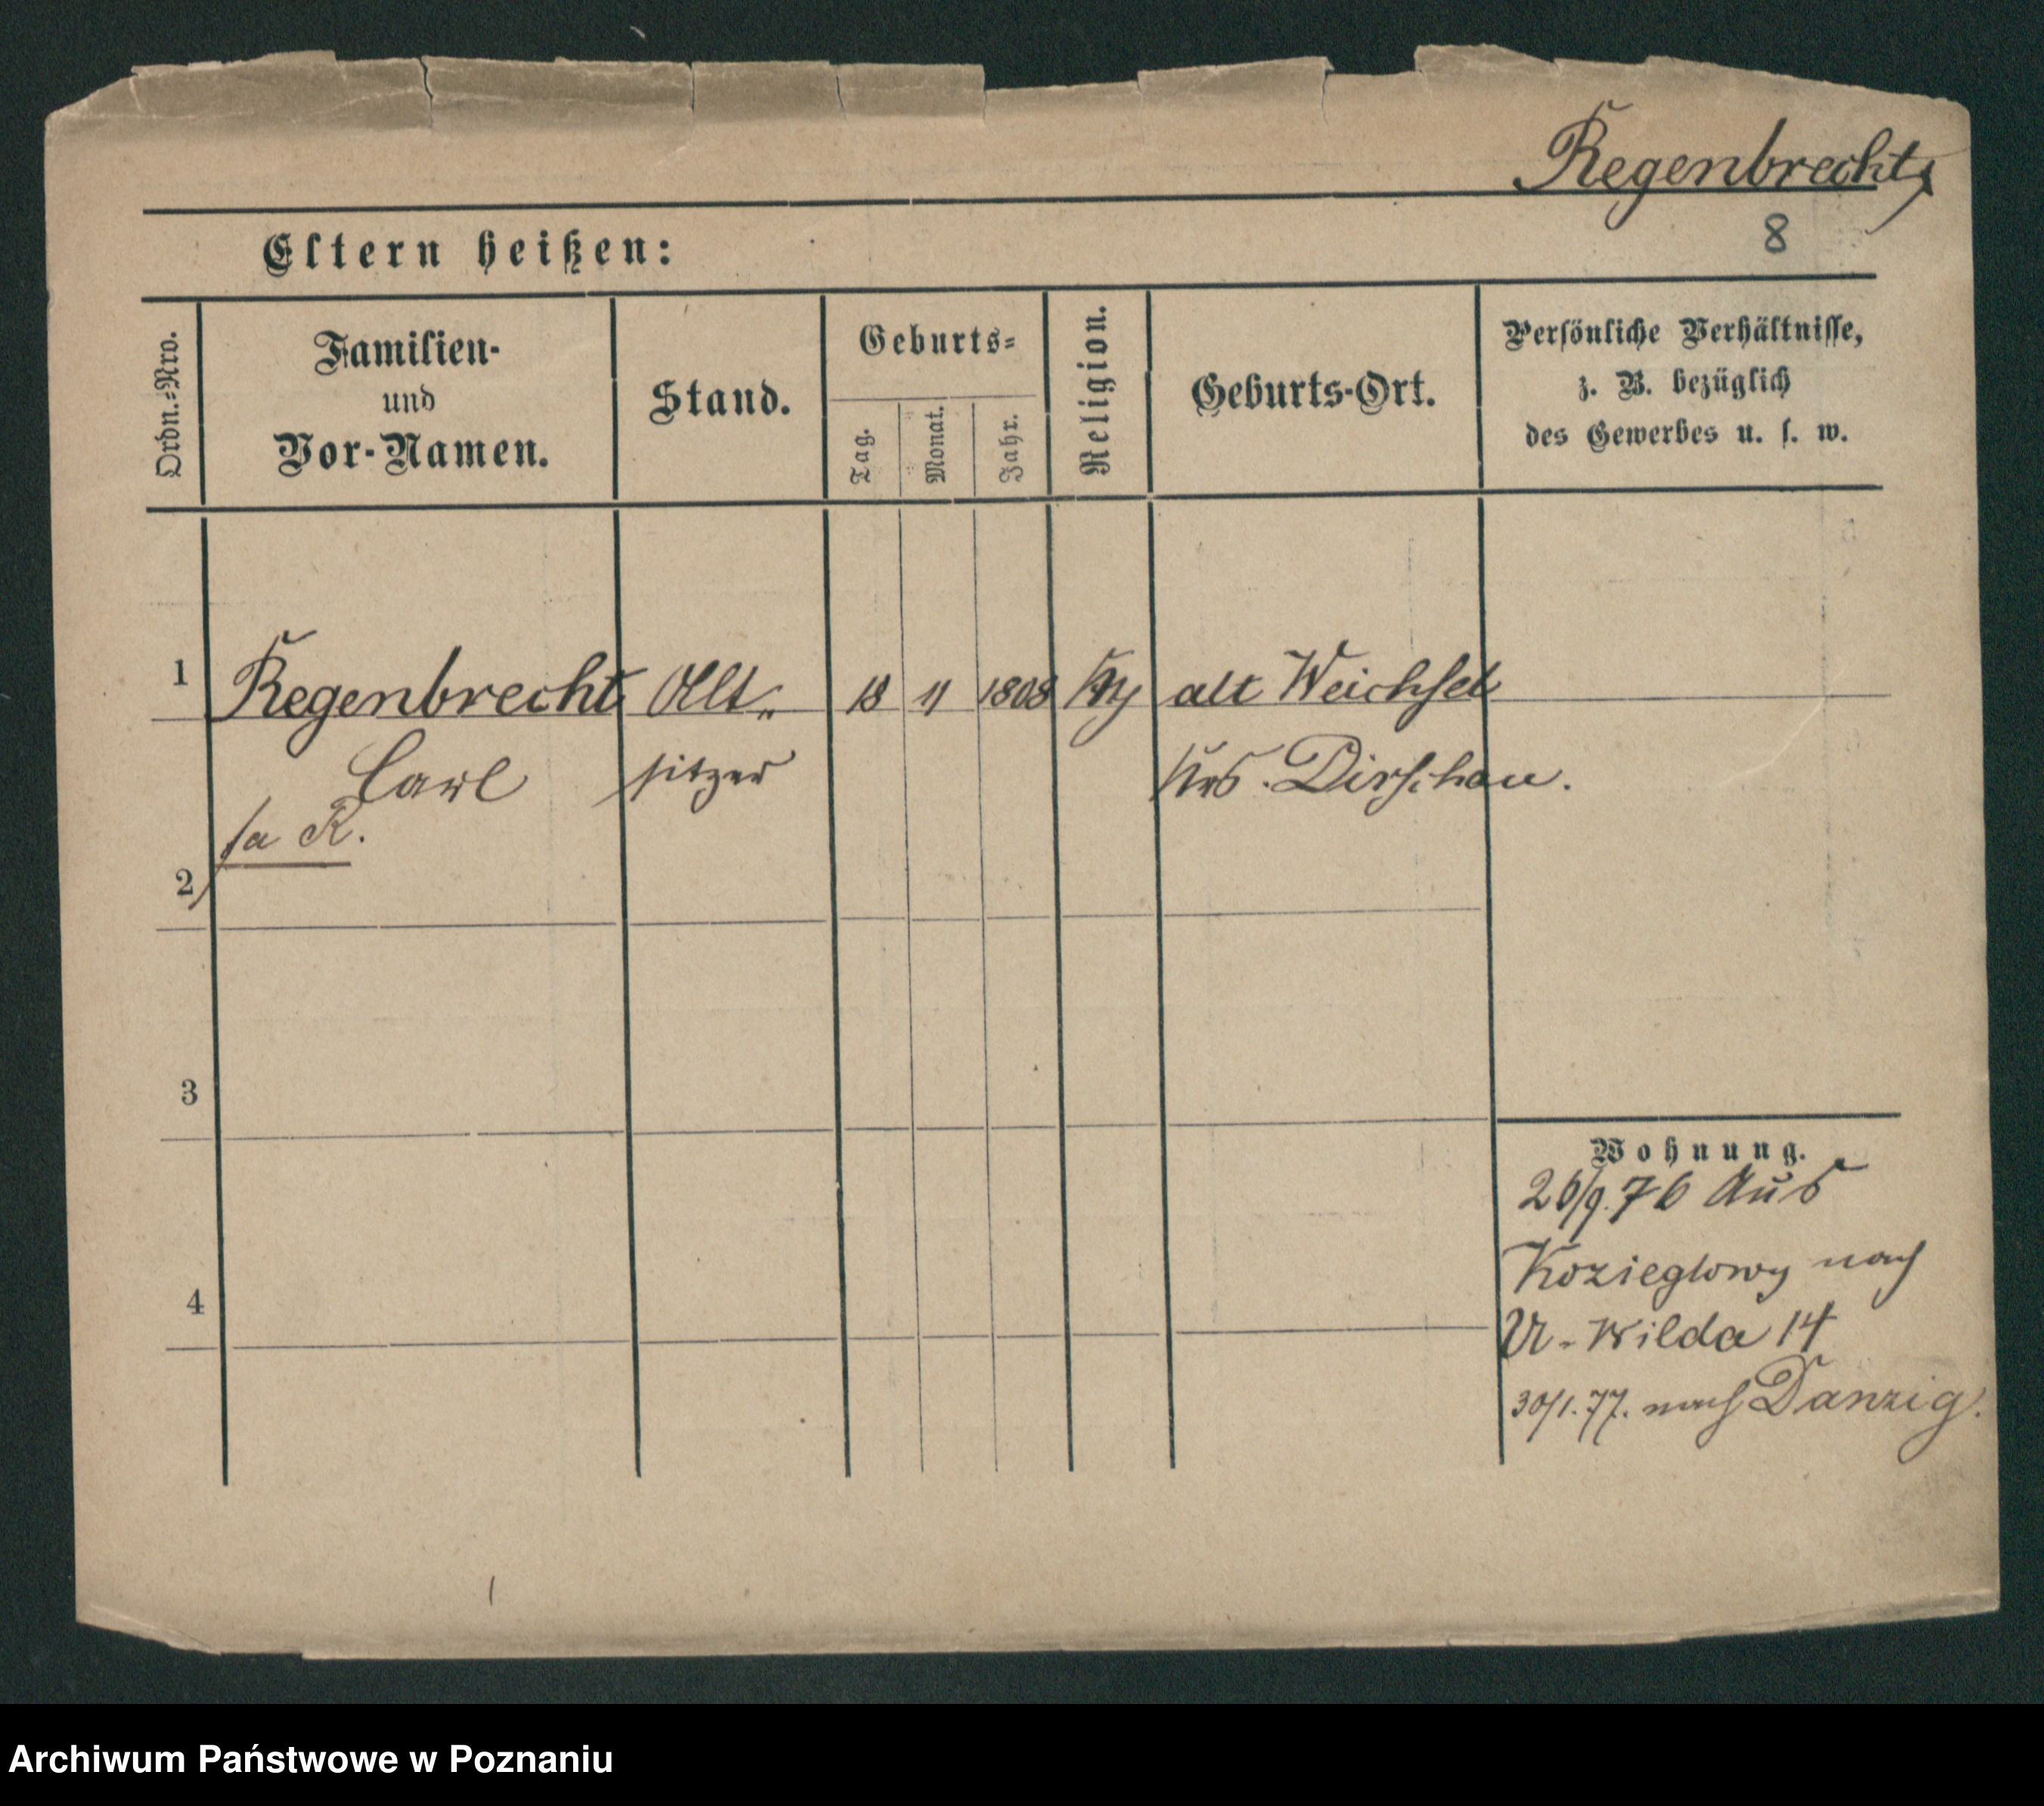 Regenbrecht,
8
Eltern heißen:
Ordn.-Nro.
Familien-
und
Vor-Namen.
Stand.
Geburts-
Tag.
Monat.
Jahr.
Religion.
Geburts-Ort.
Persönliche Verhältnisse,
z. B. bezüglich
des Gewerbes u. s. w.
1 Regenbrecht Alt- 18 11 1808 alt Weichsel
Carl sitzer Krs. Dirschau.
sa R.
2
3
4
Wohnung.
26/9.76 Aus
Kozieglowy nach
U-Wilda 14
30/1.77. nach Danzig.
Archiwum Państwowe w Poznaniu